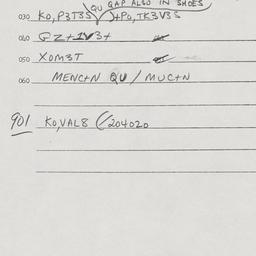 QU GAP ALSO IN SHOES
030 KO,P3T3S )+PO,TK3V3S
040 GZ+1V3+
050 XOM3T
060 MENC+N QU / MUC+N
901 KO,VAL8 (204020